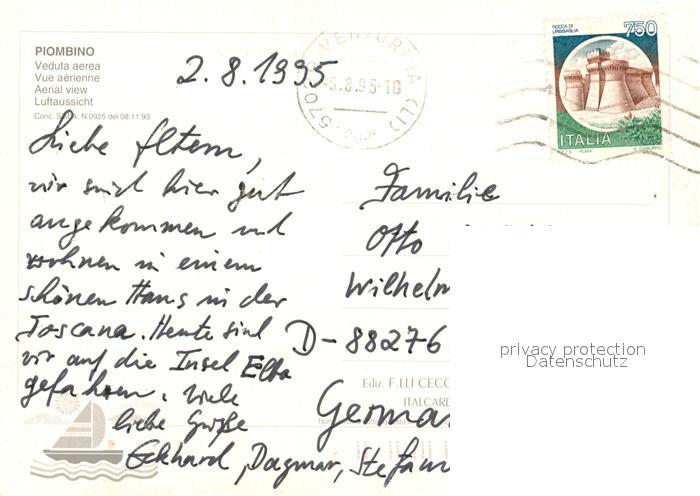 PIOMBINO
Veduta aerea
Vue aérienne
Aerial view
Luftaussicht
Conc. S.M.A. N.0925 del 08.11.93
2.8.1995
VENTURINA (LI)
-5.8.95-10
570
ROCCA DI
URBISAGLIA
750
ITALIA
ROMA
Liebe Eltern,
wir sind hier gut
angekommen und
wohnen in einem
schönen Haus in der
Toscana. Heute sind
wir auf die Insel Elba
gefahren. Viele
liebe Grüße
Eckhard, Dagmar, Stefan
Familie
Otto
Wilhelm
D-88276
German
Ediz. F.LLI CECC
ITALCARD
privacy protection
Datenschutz